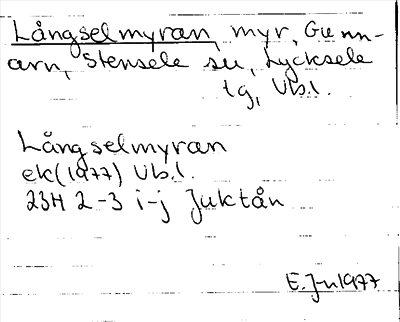 Långselmyran, myr, Gunn-
arn, Stensele su, Lycksele
tg, Vb.l.
Långselmyran
ek(1977) Vb.l.
23H 2-3 i-j Juktån
E.J-n 1977